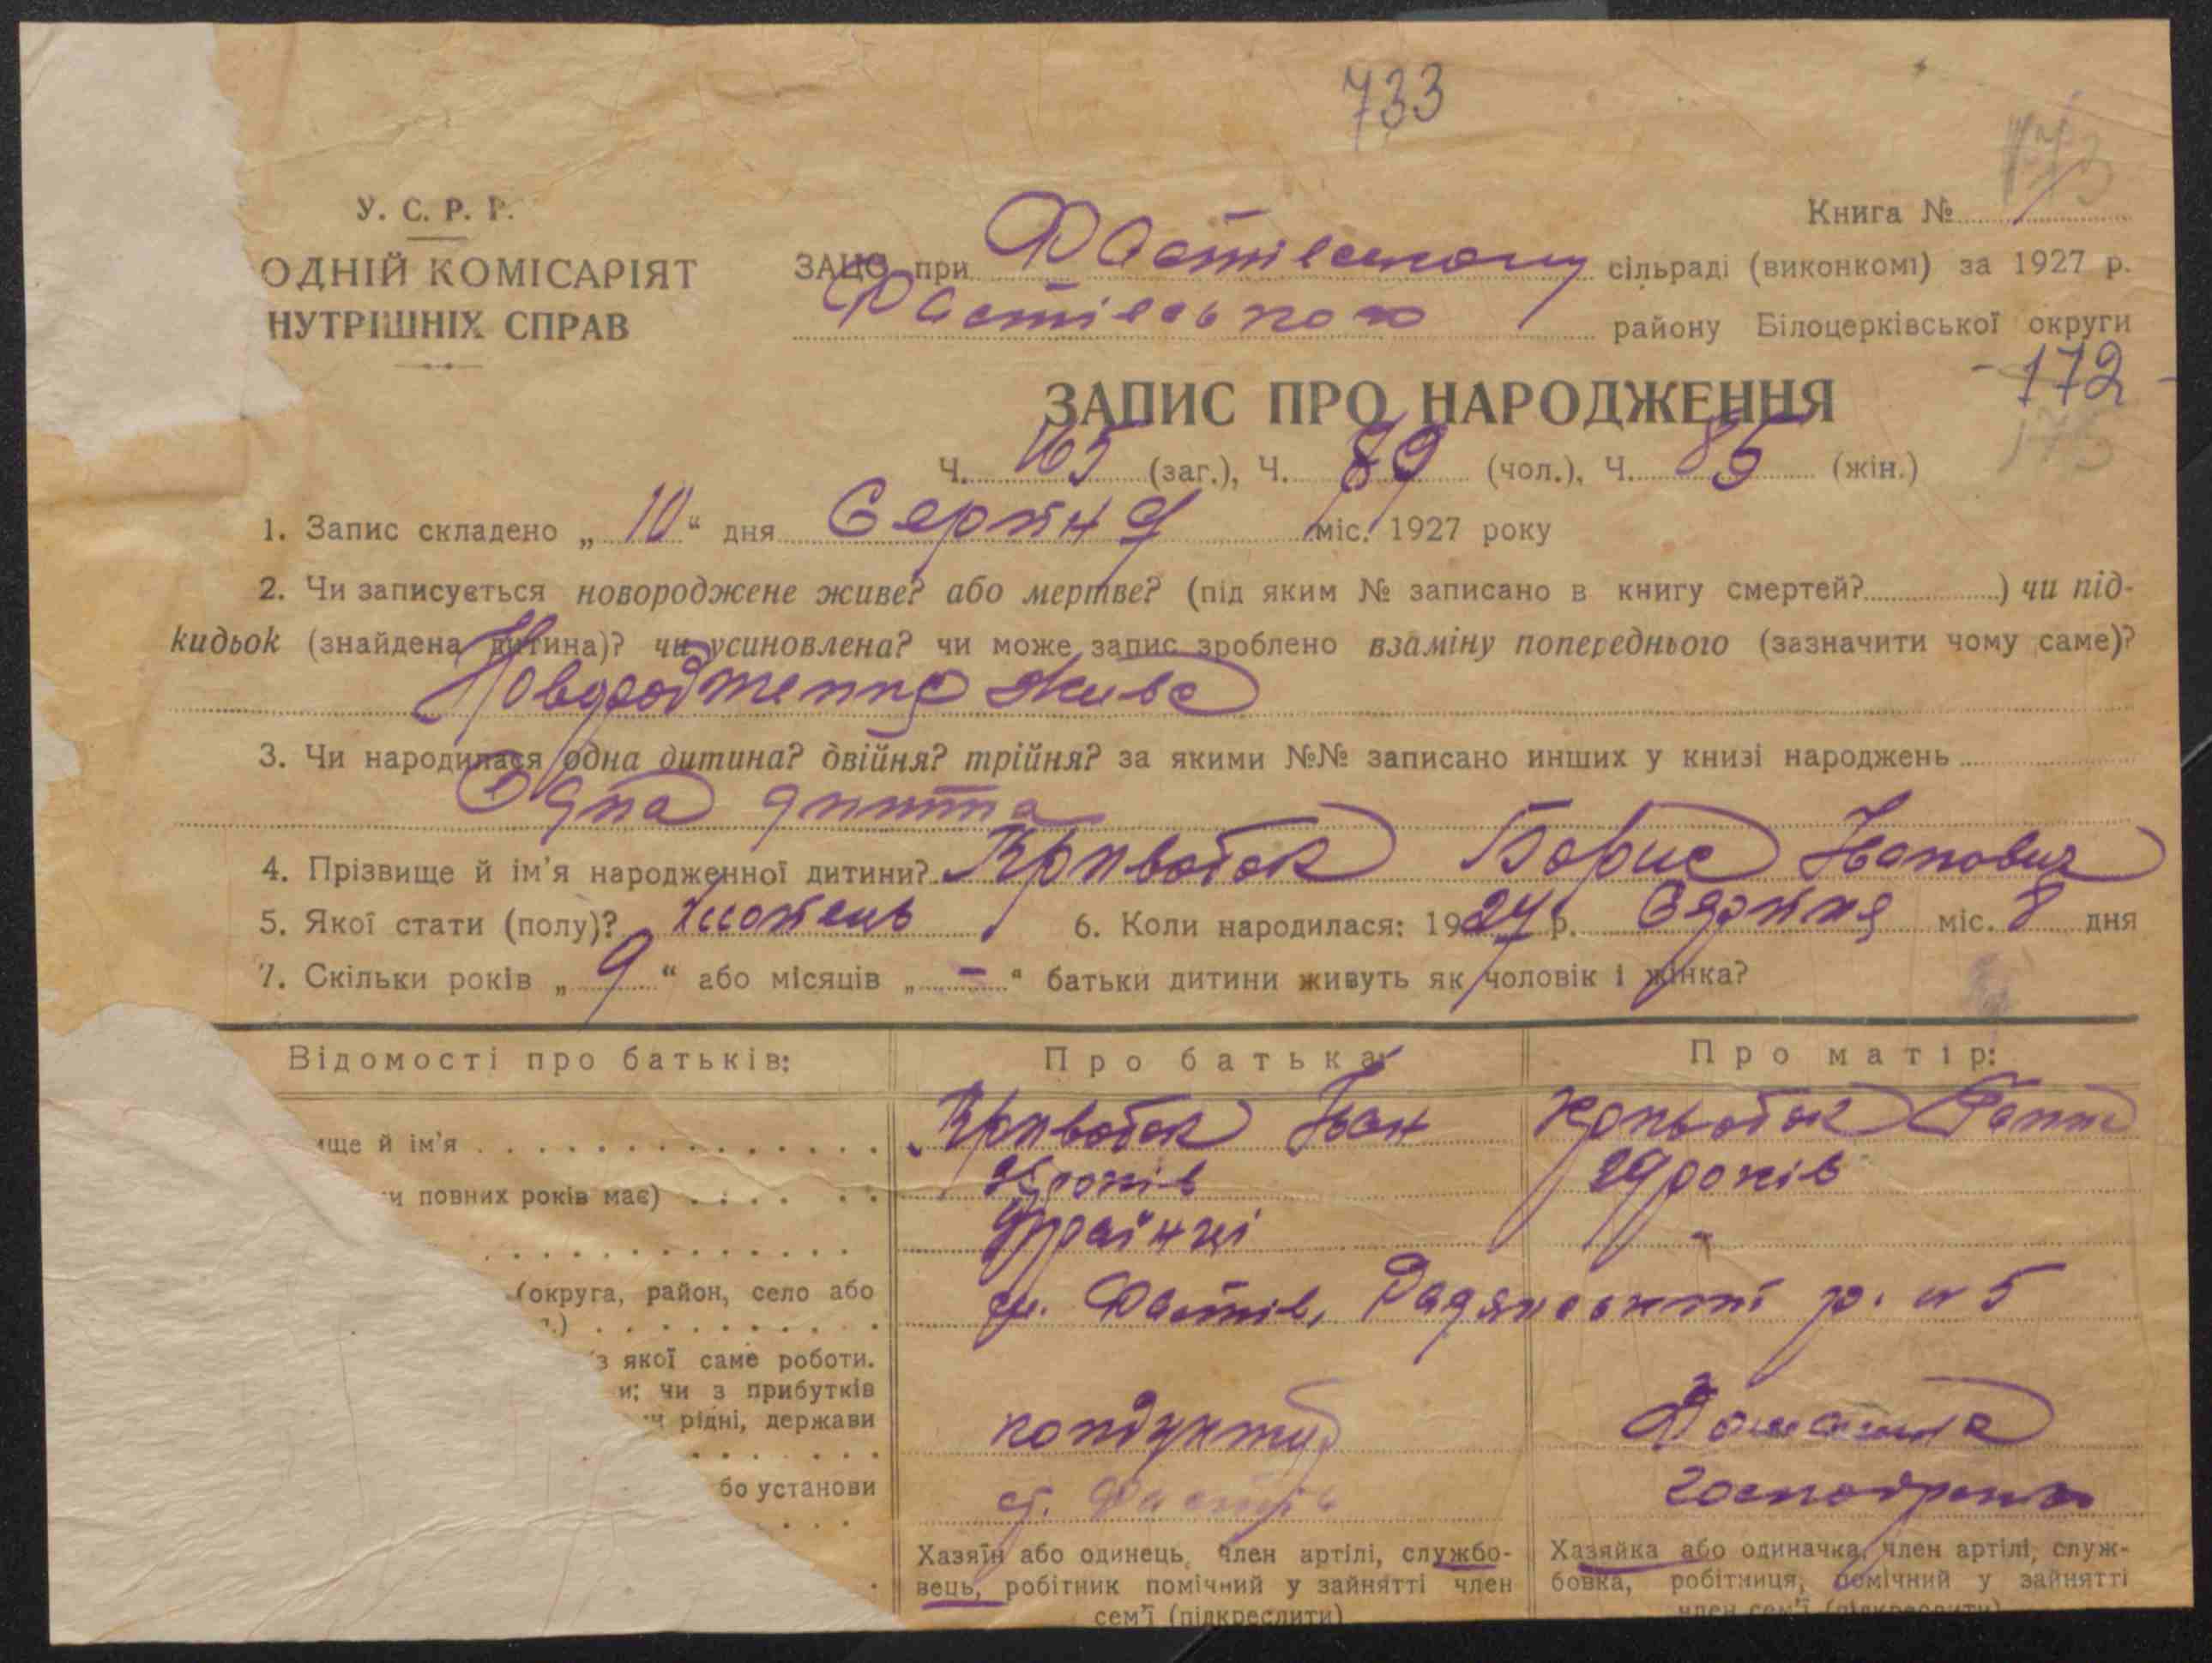 733
У. С. Р. Р.
Книга № 1
ОДНІЙ КОМІСАРІЯТ
НУТРІШНІХ СПРАВ
ЗАЦС при Фастівському сільраді (виконкомі) за 1927 р.
Фастівського району Білоцерківської округи
172
ЗАПИС ПРО НАРОДЖЕННЯ
Ч. 165 (заг.), Ч. 89 (чол.), Ч. 85 (жін.)
1. Запис складено „ 10 “ дня Серпня міс. 1927 року
2. Чи записується новороджене живе? або мертве? (під яким № записано в книгу смертей? ) чи під-
кидьок (знайдена дитина)? чи усиновлена? чи може запис зроблено взаміну попереднього (зазначити чому саме)?
Новородженна живе
3. Чи народилася одна дитина? двійня? трійня? за якими №№ записано инших у книзі народжень
Одна дитина
4. Прізвище й ім’я народженної дитини? Кривобок Борис Іванович
5. Якої стати (полу)? хлопець 6. Коли народилася: 1927 р. Серпня міс. 8 дня
7. Скільки років „ 9 “ або місяців „ – “ батьки дитини живуть як чоловік і жінка?
Відомості про батьків: Про батька: Про матір:
ище й ім’я Кривобок Іван Кривобок Ганна
и повних років має) років 29 років
Українці "
(округа, район, село або м. Фастів, Радянський р. № 5
.)
з якої саме роботи.
и; чи з прибутків
чи рідні, держави кондуктур Домашня
бо установи ст. Фастів господарка
Хазяїн або одинець, член артілі, службо-
вець, робітник помічний у зайнятті член
сем’ї (підкреслити)
Хазяйка або одиначка, член артілі, служ-
бовка, робітниця, помічний у зайнятті
член сем’ї (підкреслити)